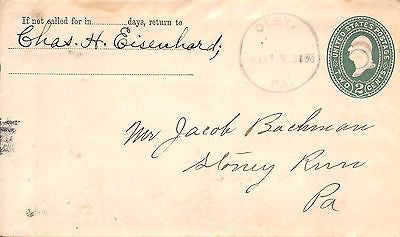 If not called for in............days, return to
Chas. H. Eisenhard;
OLEY,
PA.
UNITED STATES POSTAGE
TWO 2 CENTS
Mr Jacob Bachman
Stoney Run
Pa